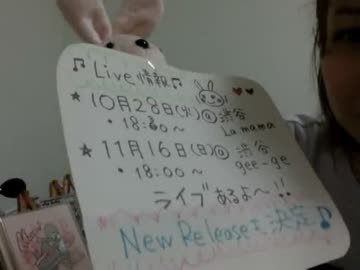 ♫ Live 情報 ♫
★ 10月28日(火) @ 渋谷 La.mama
・18:30〜
★ 11月16日(日) @ 渋谷 gee-ge
・18:00〜
ライブあるよ〜!!
New Releaseも決定♪